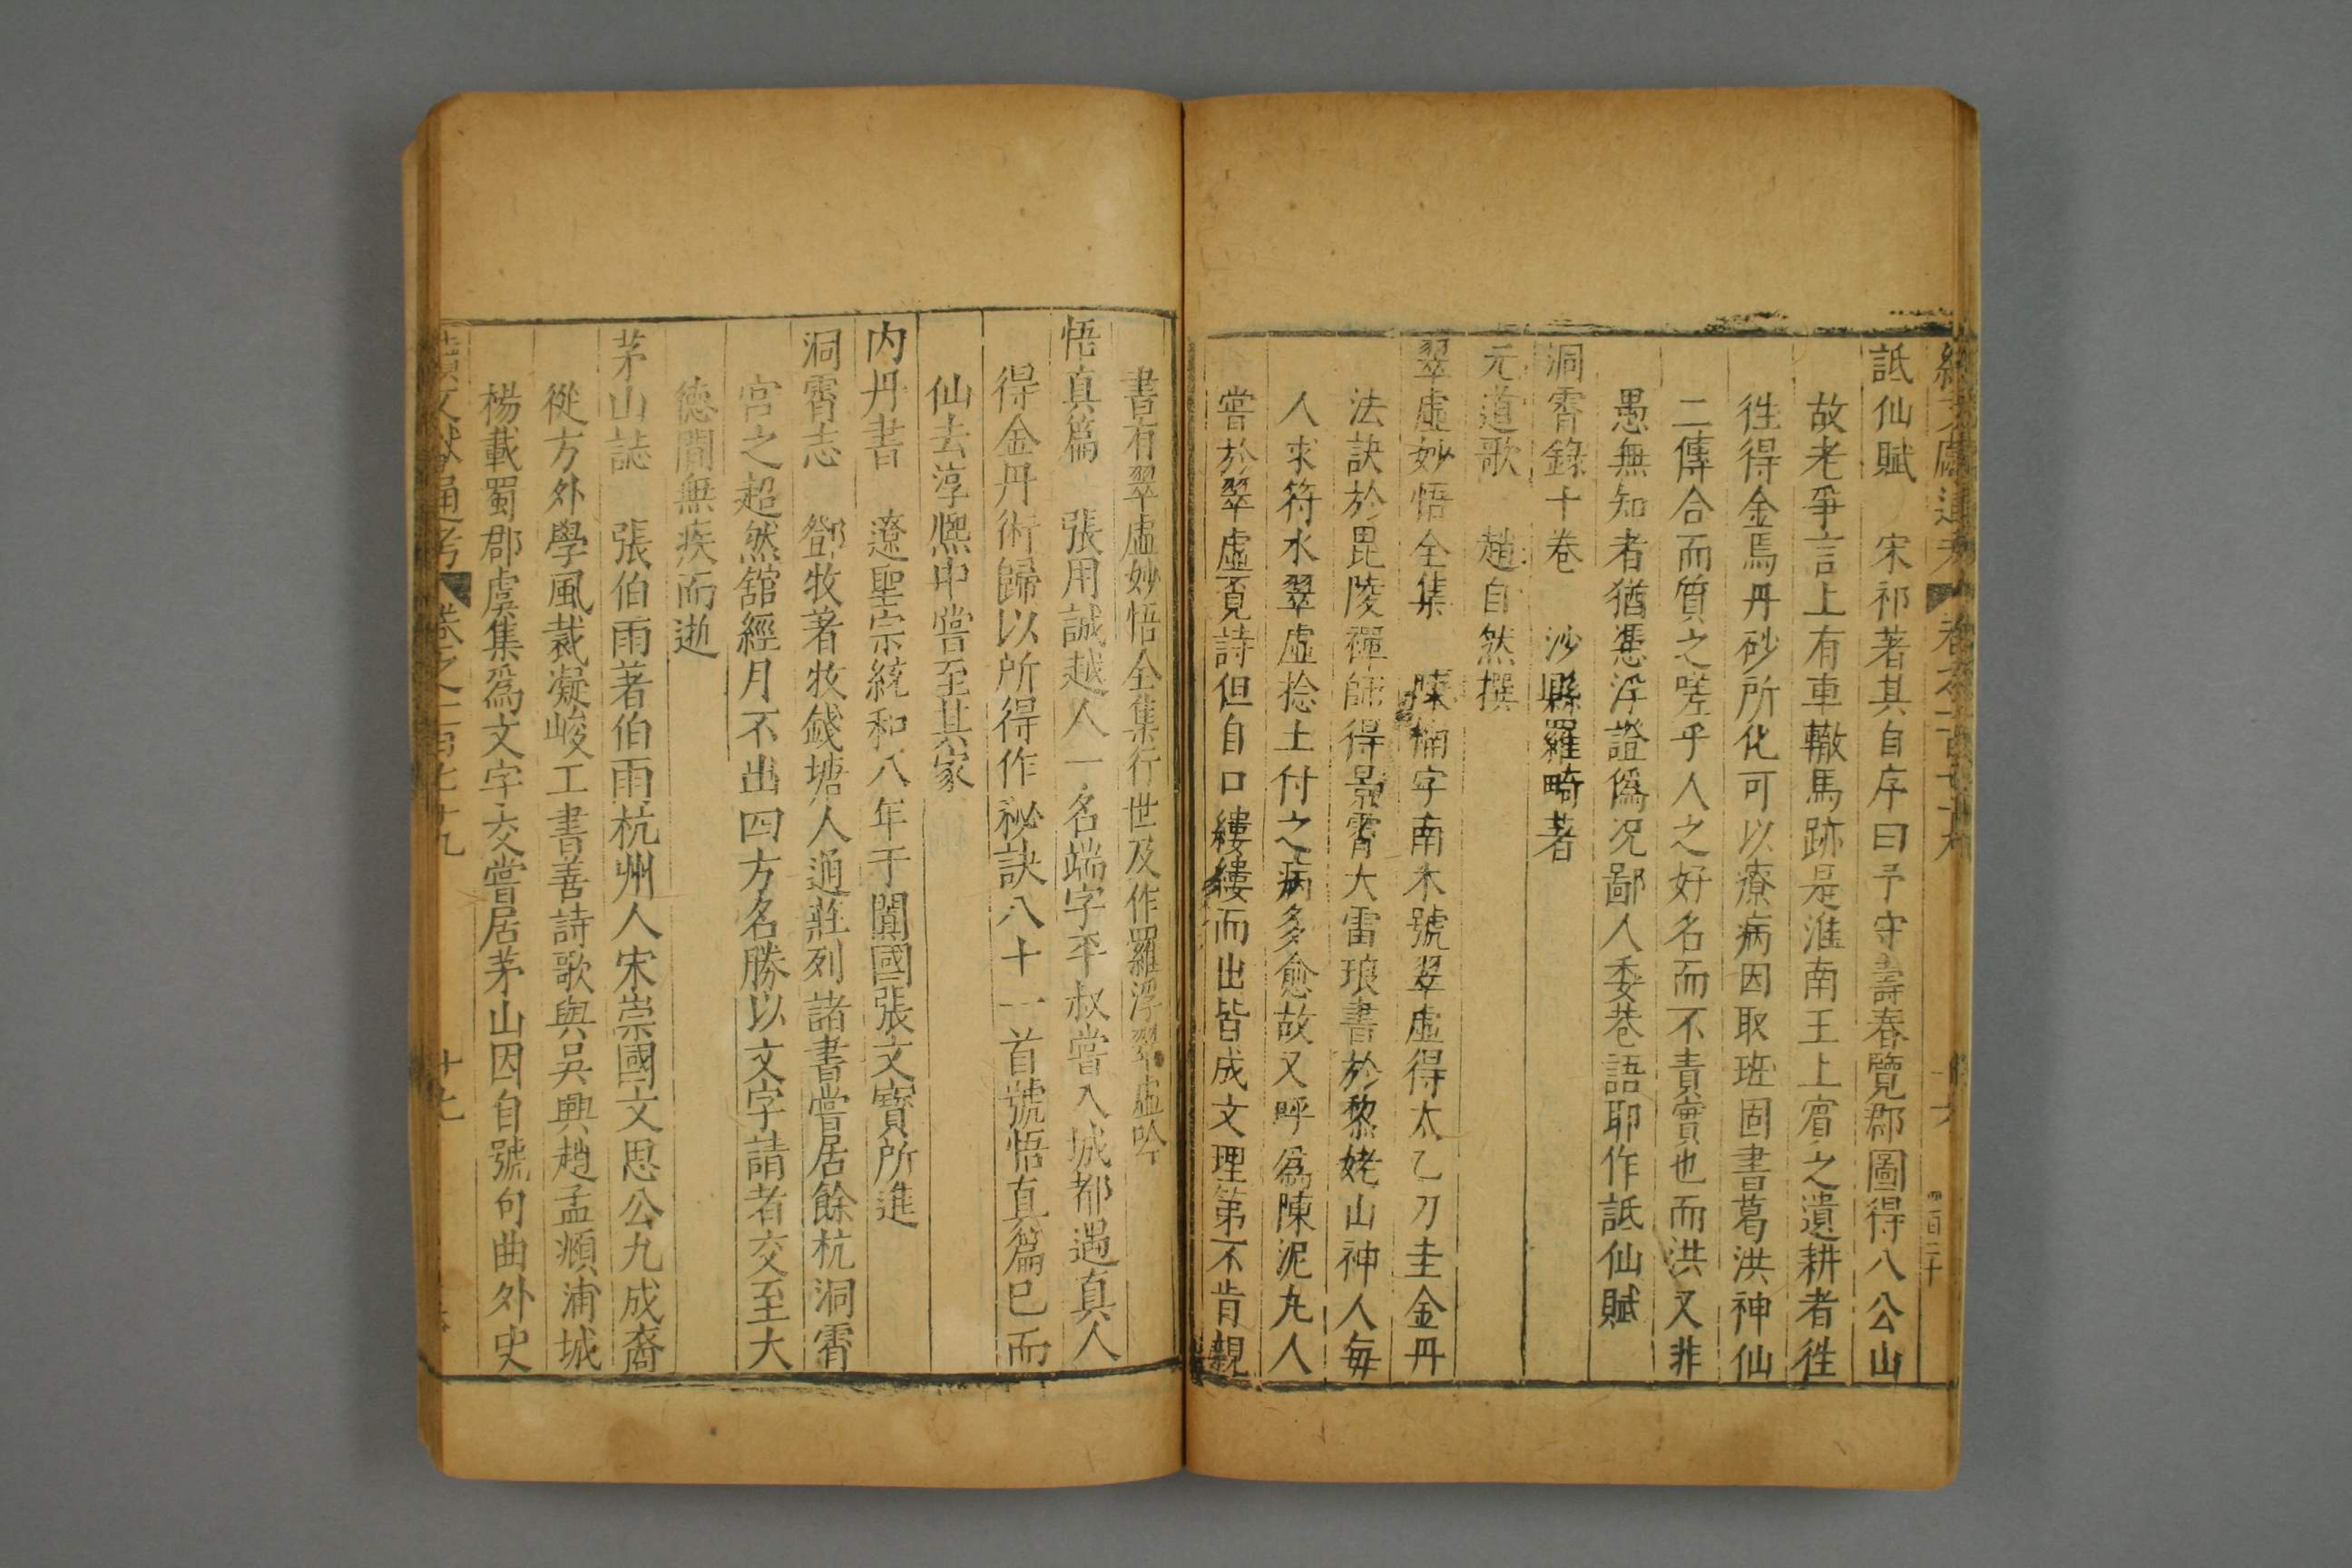 詆仙賦　宋祁著其自序曰予守壽春覽郡圖得八公山
故老爭言上有車轍馬跡是淮南王上賔之遺耕者徃
徃得金焉丹砂所化可以療病因取班固書葛洪神仙
二傳合而質之嗟乎人之好名而不責實也而洪又非
愚無知者猶憑浮證僞况鄙人委巷語耶作詆仙賦
洞霄錄十卷　沙縣羅畸著
元道歌　趙自然撰
翠虛妙悟全集　陳楠字南木號翠虛得太乙刀圭金丹
法訣於毘陵禪師得景霄大雷琅書於黎姥山神人每
人求符水翠虛捻土付之病多愈故又呼爲陳泥丸人
嘗於翠虛覔詩但自口縷縷而出皆成文理第不肯親
書有翠虛妙悟全集行世及作羅浮翠虛吟
悟真篇　張用誠越人一名端字平叔嘗入城都遇真人
得金丹術歸以所得作秘訣八十一首號悟真篇已而
仙去淳熈中嘗至其家
内丹書　遼聖宗統和八年于闐國張文寶所進
洞霄志　鄧牧著牧錢塘人通莊列諸書嘗居餘杭洞霄
宫之超然舘經月不出四方名勝以文字請者交至大
德間無疾而逝
茅山誌　張伯雨著伯雨杭州人宋崇國文思公九成裔
從方外學風裁凝峻工書善詩歌與吳興趙孟頫浦城
楊載蜀郡虞集爲文字交嘗居茅山因自號句曲外史
續文獻通考　卷之二百七十九　十七